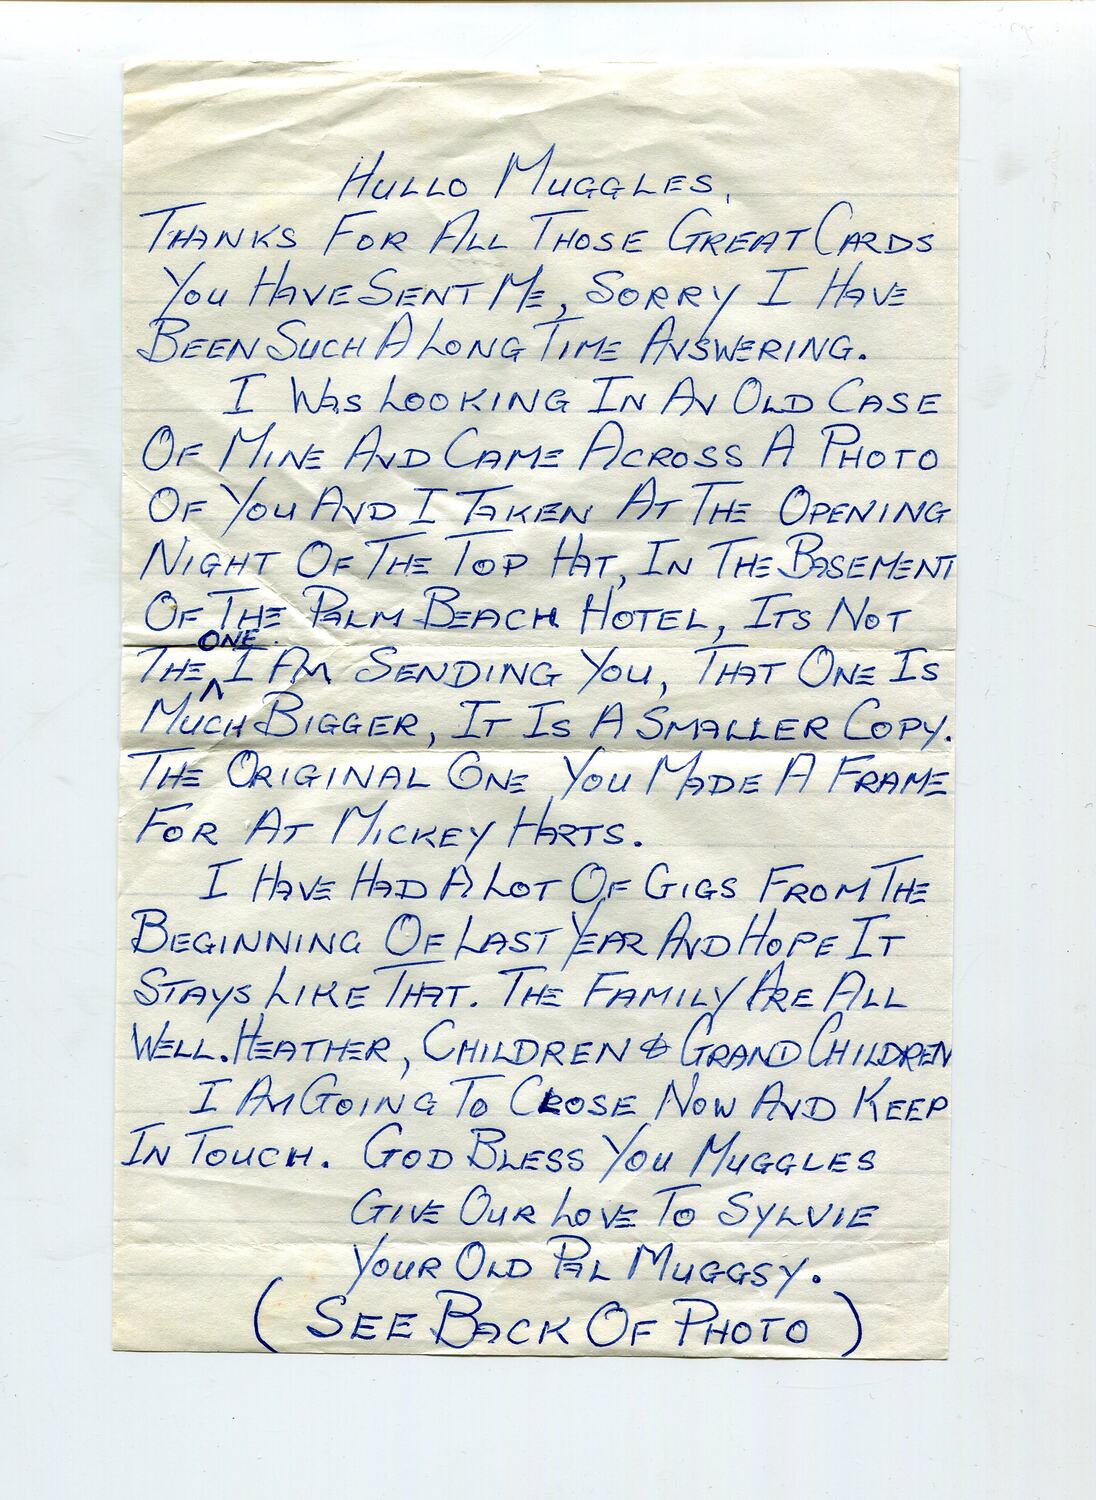 HULLO MUGGLES,
THANKS FOR ALL THOSE GREAT CARDS
YOU HAVE SENT ME, SORRY I HAVE
BEEN SUCH A LONG TIME ANSWERING.
I WAS LOOKING IN AN OLD CASE
OF MINE AND CAME ACROSS A PHOTO
OF YOU AND I TAKEN AT THE OPENING
NIGHT OF THE TOP HAT, IN THE BASEMENT
OF THE PALM BEACH HOTEL, ITS NOT
THE ONE I AM SENDING YOU, THAT ONE IS
MUCH BIGGER, IT IS A SMALLER COPY.
THE ORIGINAL ONE YOU MADE A FRAME
FOR AT MICKEY HARTS.
I HAVE HAD A LOT OF GIGS FROM THE
BEGINNING OF LAST YEAR AND HOPE IT
STAYS LIKE THAT. THE FAMILY ARE ALL
WELL. HEATHER, CHILDREN & GRAND CHILDREN
I AM GOING TO CLOSE NOW AND KEEP
IN TOUCH. GOD BLESS YOU MUGGLES
GIVE OUR LOVE TO SYLVIE
YOUR OLD PAL MUGGSY.
(SEE BACK OF PHOTO)